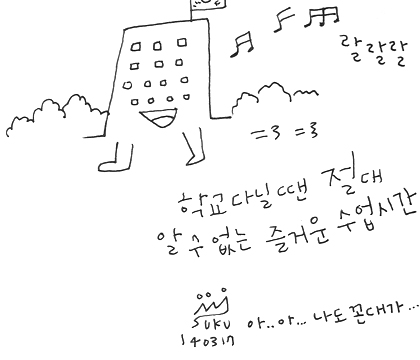 랄랄라
=3 =3
학교 다닐땐 절대
알 수 없는 즐거운 수업시간
SUKU
140317
아..아... 나도 꼰대가...